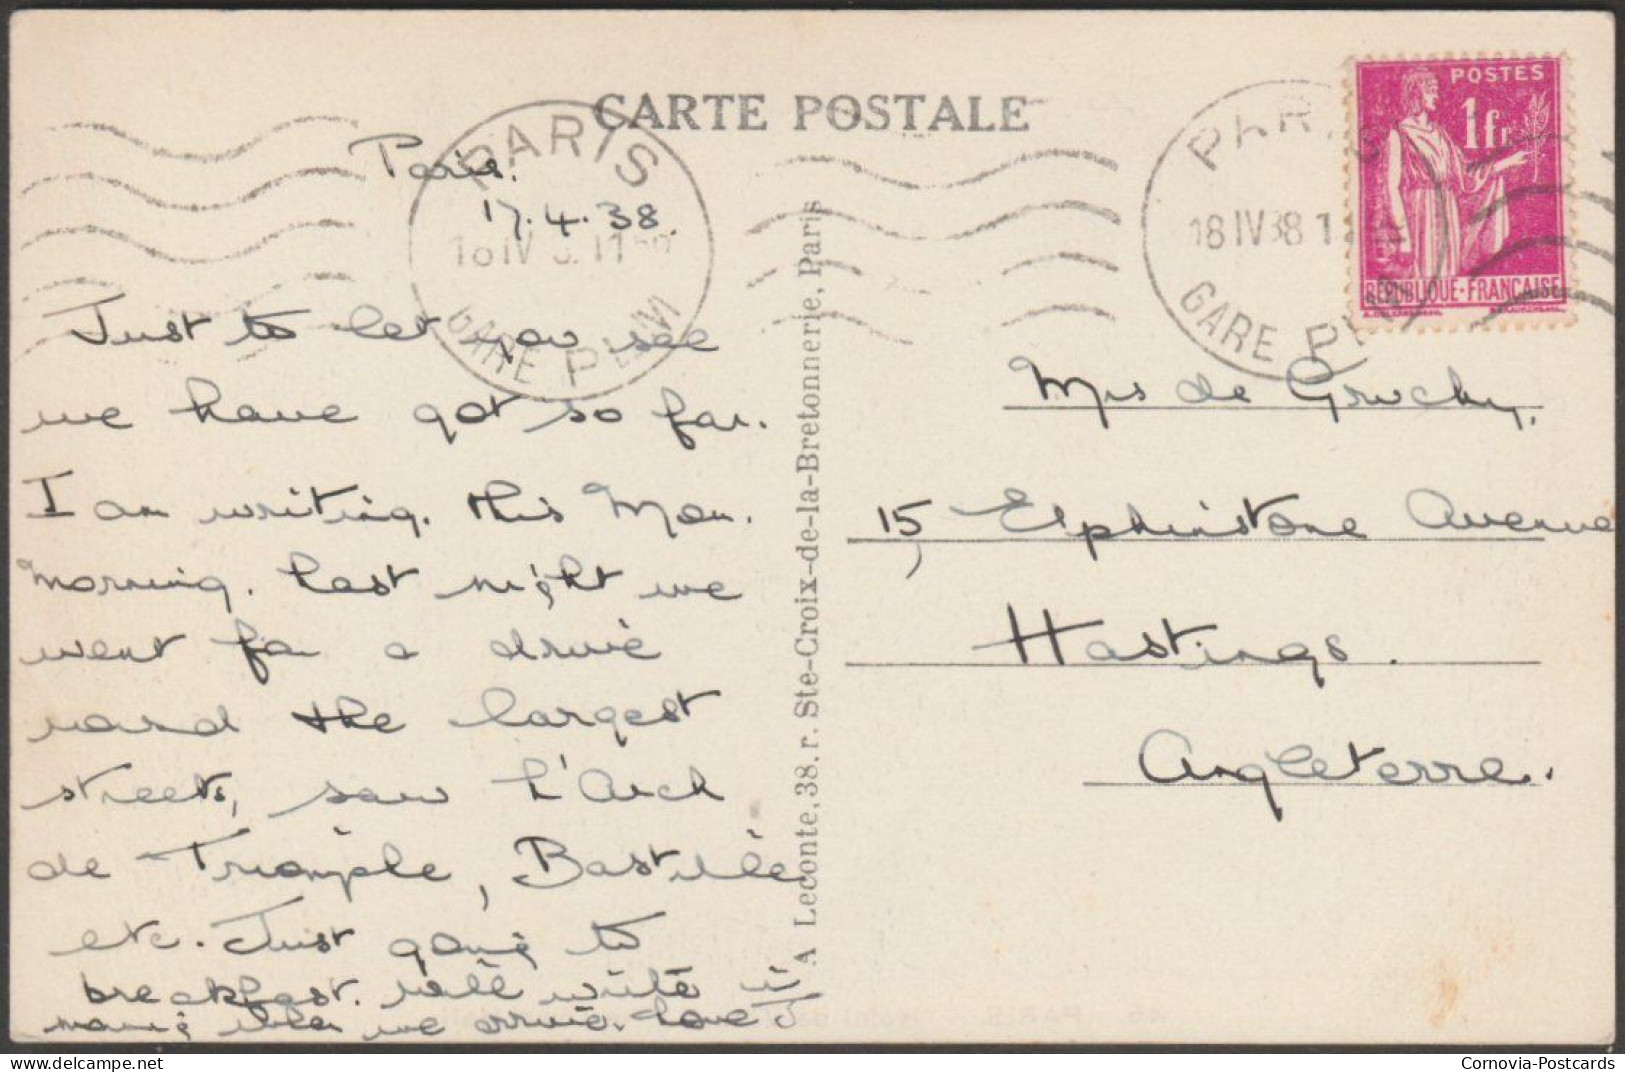 CARTE POSTALE
Paris.
17.4.38.
PARIS
GARE PLM
PARIS
18 IV 38
GARE PLM
POSTES
1fr
REPUBLIQUE-FRANÇAISE
Just to let you see
we have got so far.
I am writing this Mon.
morning. Last night we
went for a drive
round the largest
streets, saw L'Arck
de Triomple, Bastille
etc. Just going to
breakfast. Will write
when we arrive. Love J
A Leconte, 38. r. Ste-Croix-de-la-Bretonnerie, Paris
Mrs de Gruchy,
15, Elphinstone Avenue
Hastings.
Angleterre.
PARIS
Cornovia-Postcards